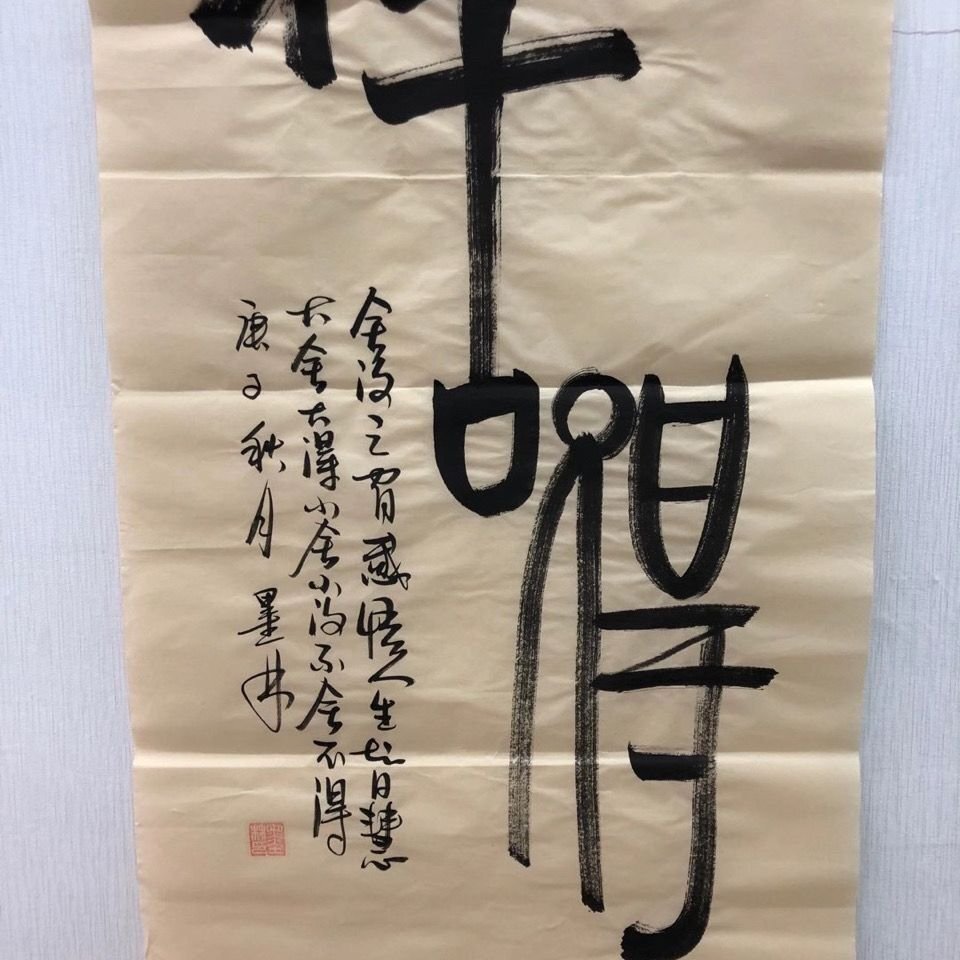 舍得
舍得之间感悟人生智慧
大舍大得小舍小得不舍不得
庚子秋月墨